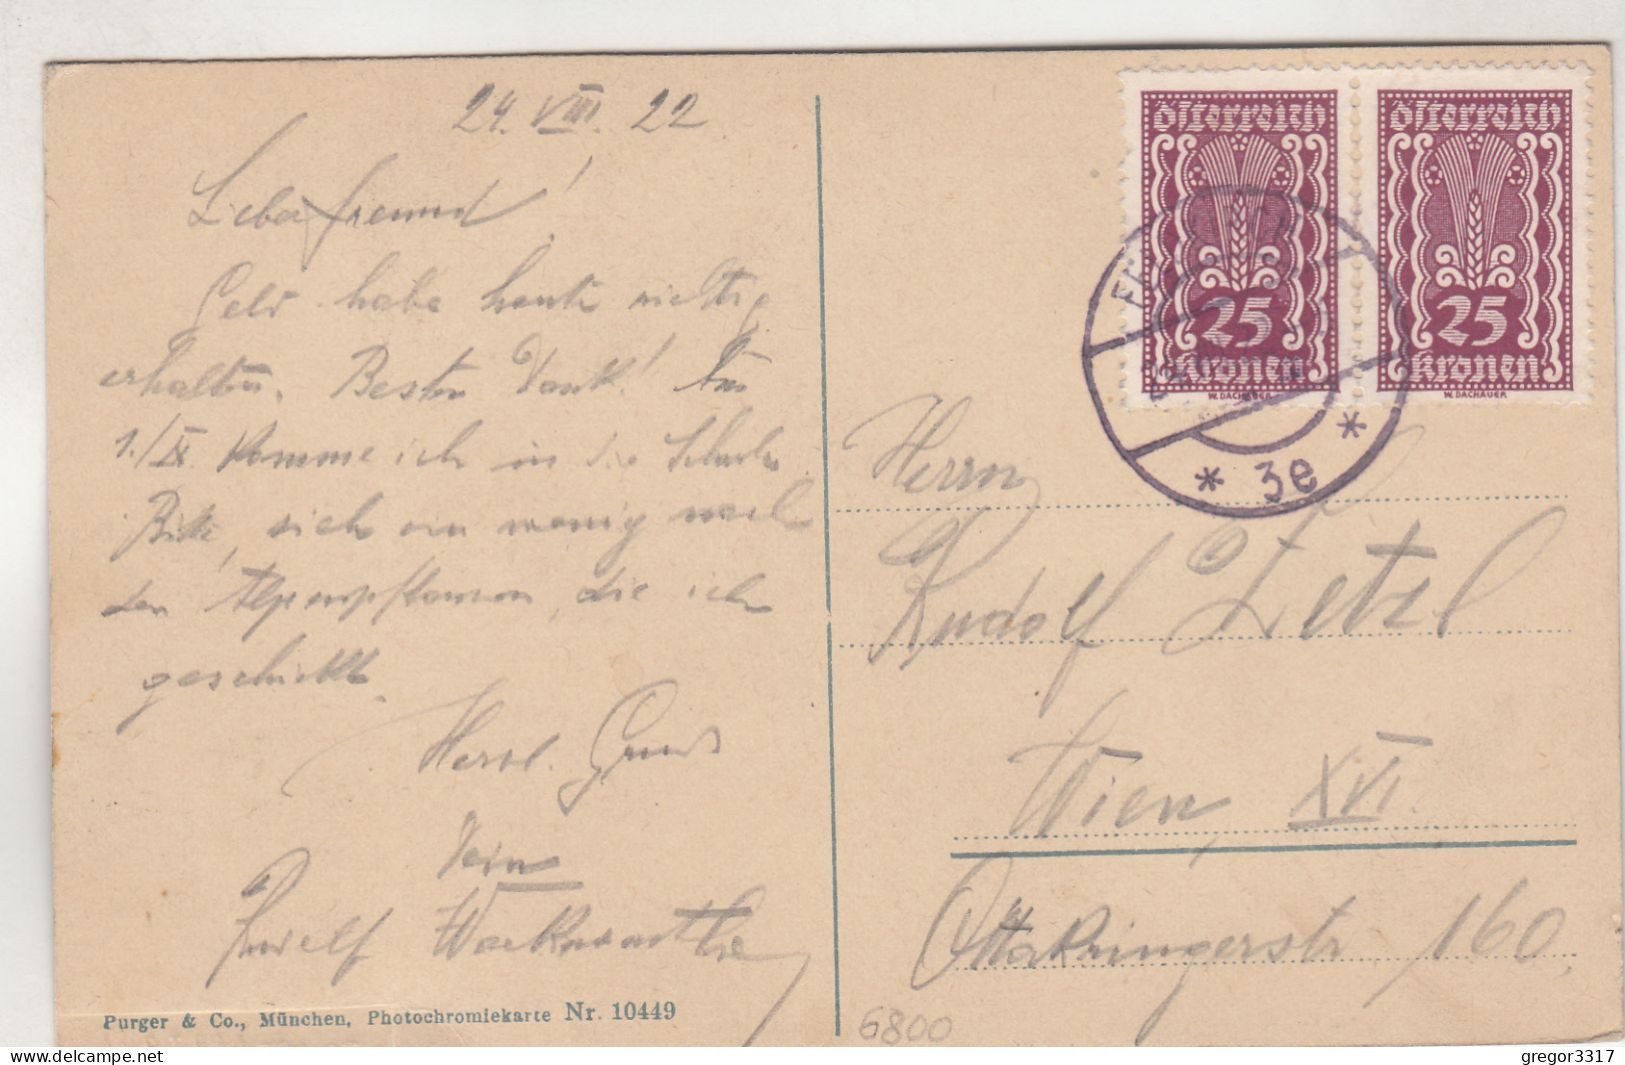 24. VIII. 22
Lieber Freund!
Geld habe heute richtig
erhalten. Besten Dank! Am
1./IX. komme ich in die Schule.
Bitte, sieh ein wenig nach
den Alpenpflanzen, die ich
geschickt.
Herzl. Gruß
Dein
Rudolf
Österreich
25
Kronen
W. DACHAUER
Österreich
25
Kronen
W. DACHAUER
* 3e *
Herrn
Rudolf Zetzl
Wien XVI.
Ottakringerstr 160.
6800
Purger & Co., München, Photochromiekarte Nr. 10449
gregor3317
www.delcampe.net